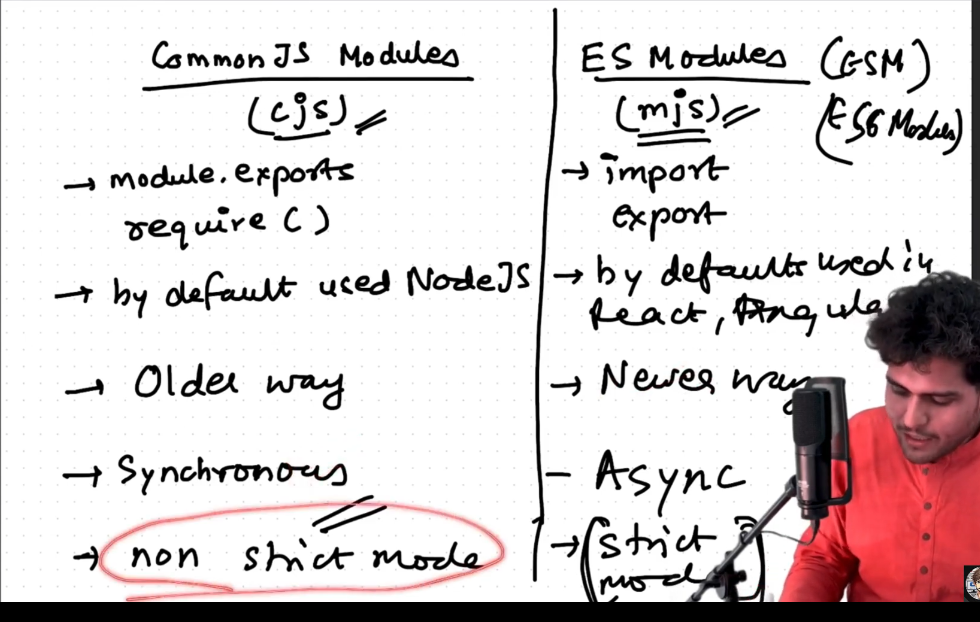 CommonJS Modules
(cjs)
→ module.exports
require()
→ by default used NodeJS
→ Older way
→ Synchronous
→ non strict mode
ES Modules (ESM)
(mjs) (ES6 Modules)
→ import
export
→ by defaults used in
React, Angular
→ Newer way
- Async
→ (strict
mode